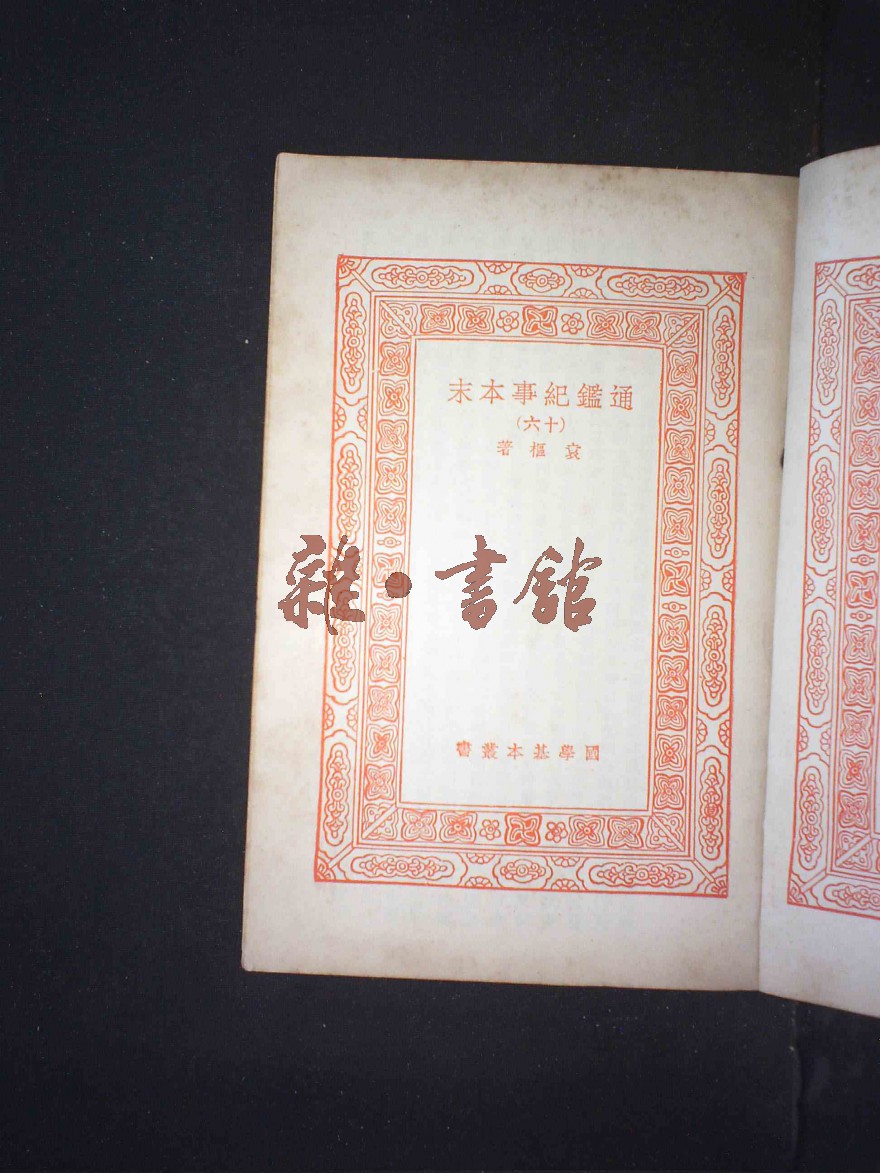 通鑑紀事本末
(十六)
袁樞著
雜·書館
國學基本叢書